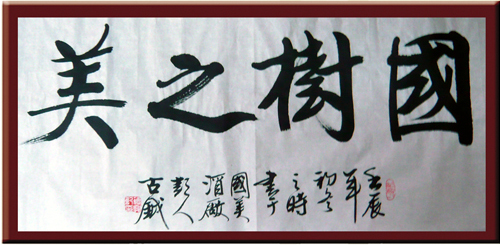 國樹之美
壬辰
年
初冬
之時
書于
國美
彭人